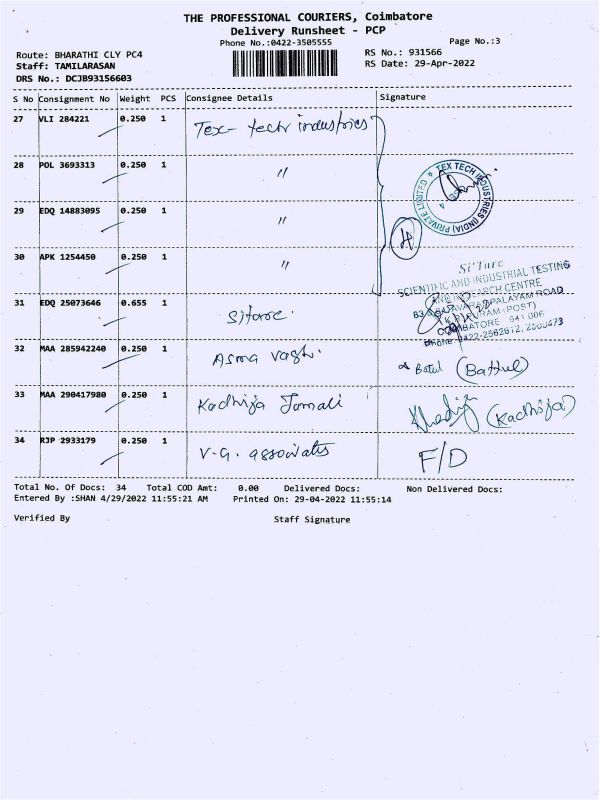 THE PROFESSIONAL COURIERS, Coimbatore
Delivery Runsheet - PCP
Phone No.:0422-3505555
Page No.:3
Route: BHARATHI CLY PC4
RS No.: 931566
Staff: TAMILARASAN
RS Date: 29-Apr-2022
DRS No.: DCJB93156603
S No Consignment No Weight PCS Consignee Details Signature
27 VLI 284221 0.250 1 Tex- tech industries
28 POL 3693313 0.250 1 "
TEX TECH INDUSTRIES (INDIA) PRIVATE LIMITED
29 EDQ 14883095 0.250 1 "
30 APK 1254450 0.250 1 "
Si'Tarc
SCIENTIFIC AND INDUSTRIAL TESTING
AND RESEARCH CENTRE
31 EDQ 25073646 0.655 1 Sitarc.
COIMBATORE 641 006
Phone: 0422-2562612,
32 MAA 285942240 0.250 1 Asma vagh. Batul (Battul)
33 MAA 290417980 0.250 1 Kadhija Jomali Khadija (Kadhija)
34 RJP 2933179 0.250 1 V.G. associates F/D
Total No. Of Docs: 34 Total COD Amt: 0.00 Delivered Docs: Non Delivered Docs:
Entered By :SHAN 4/29/2022 11:55:21 AM Printed On: 29-04-2022 11:55:14
Verified By Staff Signature